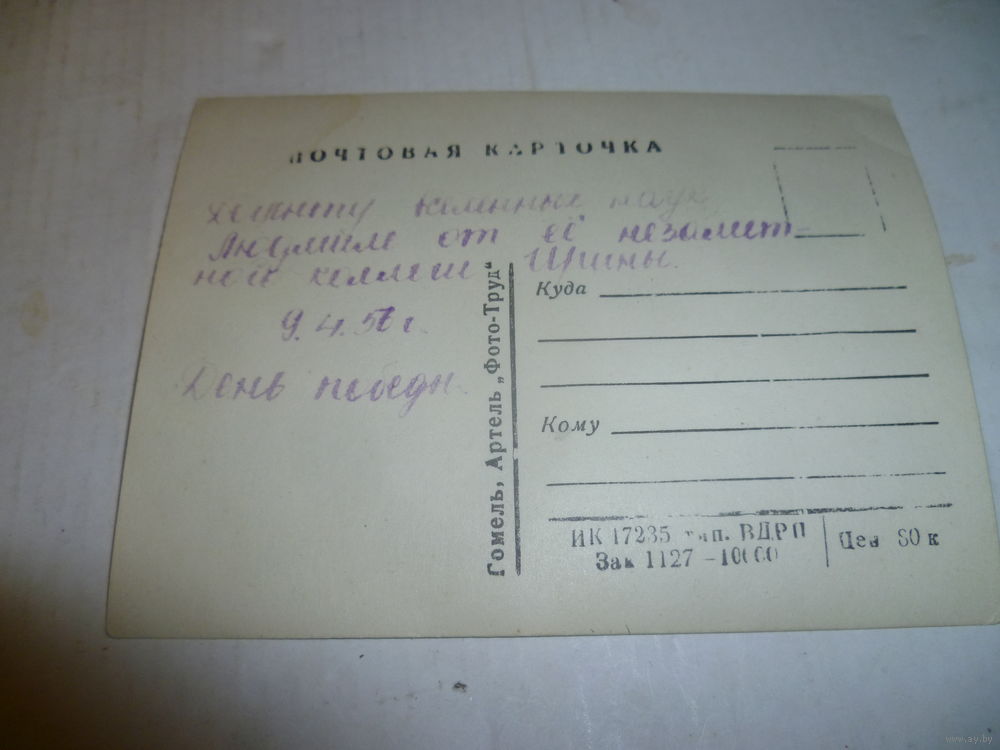 ПОЧТОВАЯ КАРТОЧКА
наук
Людмиле от её незамет-
ной Ирины.
9.4.56 г.
День победы
Гомель, Артель „Фото-Труд“
Куда
Кому
ИК 17235 тип. ВДРП
Зак 1127 – 10000
Цена 80 к
www.ay.by